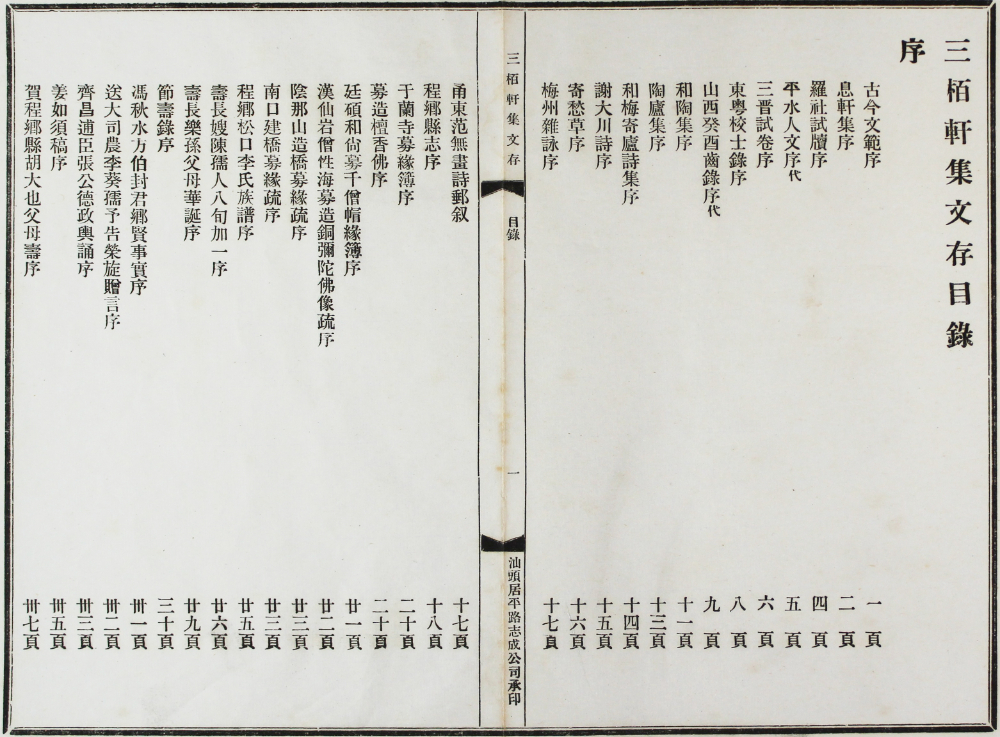 三栢軒集文存目錄
序
古今文範序 一頁
息軒集序 二頁
羅社試牘序 四頁
平水人文序代 五頁
三晋試卷序 六頁
東粵校士錄序 八頁
山西癸酉齒錄序代 九頁
和陶集序 十一頁
陶廬集序 十三頁
和梅寄廬詩集序 十四頁
謝大川詩序 十五頁
寄愁草序 十六頁
梅州雜詠序 十七頁
三栢軒集文存
目錄
一
汕頭居平路志成公司承印
甬東范無畫詩郵叙 十七頁
程鄉縣志序 十八頁
于蘭寺募緣簿序 二十頁
募造檀香佛序 二十頁
廷碩和尙募千僧帽緣簿序 廿一頁
漢仙岩僧性海募造銅彌陀佛像疏序 廿二頁
陰那山造橋募緣疏序 廿三頁
南口建橋募緣疏序 廿三頁
程鄉松口李氏族譜序 廿五頁
壽長嫂陳孺人八旬加一序 廿六頁
壽長樂孫父母華誕序 廿九頁
節壽錄序 三十頁
馮秋水方伯封君鄉賢事實序 卅一頁
送大司農李葵孺予告榮旋贈言序 卅二頁
齊昌逋臣張公德政輿誦序 卅三頁
姜如須稿序 卅五頁
賀程鄉縣胡大也父母壽序 卅七頁